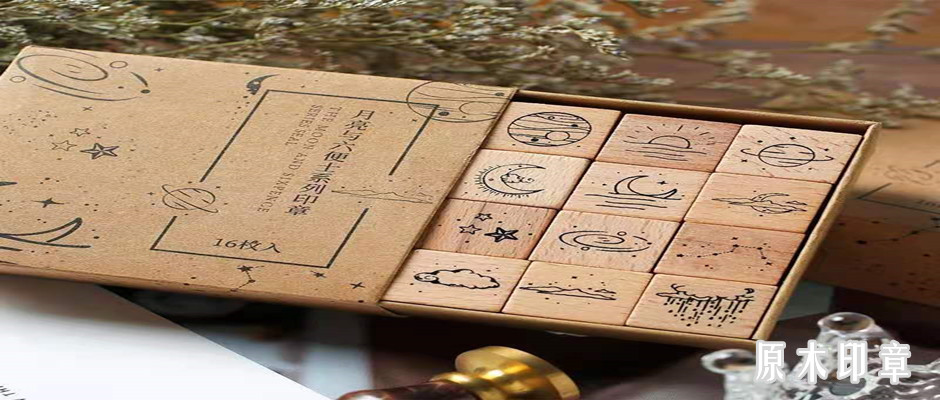 月亮与六便士系列印章
THE MOON AND SIXPENCE
SERIES SEAL
16枚入
原木印章